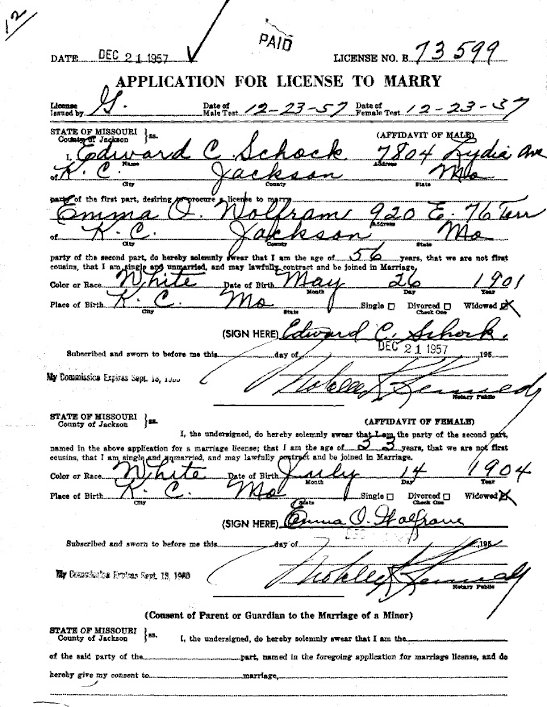 12
PAID
DATE DEC 21 1957 LICENSE NO. B 73599
APPLICATION FOR LICENSE TO MARRY
License Issued by G. Date of Male Test 12-23-57 Date of Female Test 12-23-57
STATE OF MISSOURI
County of Jackson } ss. (AFFIDAVIT OF MALE)
I, Edward C Schock 7804 Lydia Ave
Name Address
of K. C. Jackson Mo
City County State
party of the first part, desiring to procure a license to marry
Emma O. Wolfram 920 E. 76 Terr
Address
of K. C. Jackson Mo
City County State
party of the second part, do hereby solemnly swear that I am the age of 56 years, that we are not first
cousins, that I am single and unmarried, and may lawfully contract and be joined in Marriage.
Color or Race White Date of Birth May 26 1901
Month Day Year
Place of Birth K. C. Mo Single □ Divorced □ Widowed ☒
City State Check One
(SIGN HERE) Edward C. Schock.
DEC 21 1957
Subscribed and sworn to before me this day of 195
My Commission Expires Sept. 13, 1960
Notary Public
STATE OF MISSOURI
County of Jackson } ss. (AFFIDAVIT OF FEMALE)
I, the undersigned, do hereby solemnly swear that I am the party of the second part,
named in the above application for a marriage license; that I am the age of 53 years, that we are not first
cousins, that I am single and unmarried, and may lawfully contract and be joined in Marriage.
Color or Race White Date of Birth July 14 1904
Month Day Year
Place of Birth K. C. Mo Single □ Divorced □ Widowed ☒
City State Check One
(SIGN HERE) Emma O. Wolfram
Subscribed and sworn to before me this day of , 195
My Commission Expires Sept. 13, 1960
Notary Public
(Consent of Parent or Guardian to the Marriage of a Minor)
STATE OF MISSOURI
County of Jackson } ss. I, the undersigned, do hereby solemnly swear that I am the
of the said party of the part, named in the foregoing application for marriage license, and do
hereby give my consent to marriage,